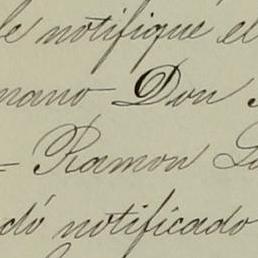 le notifiqué el
mano Don
= Ramon
dó notificado